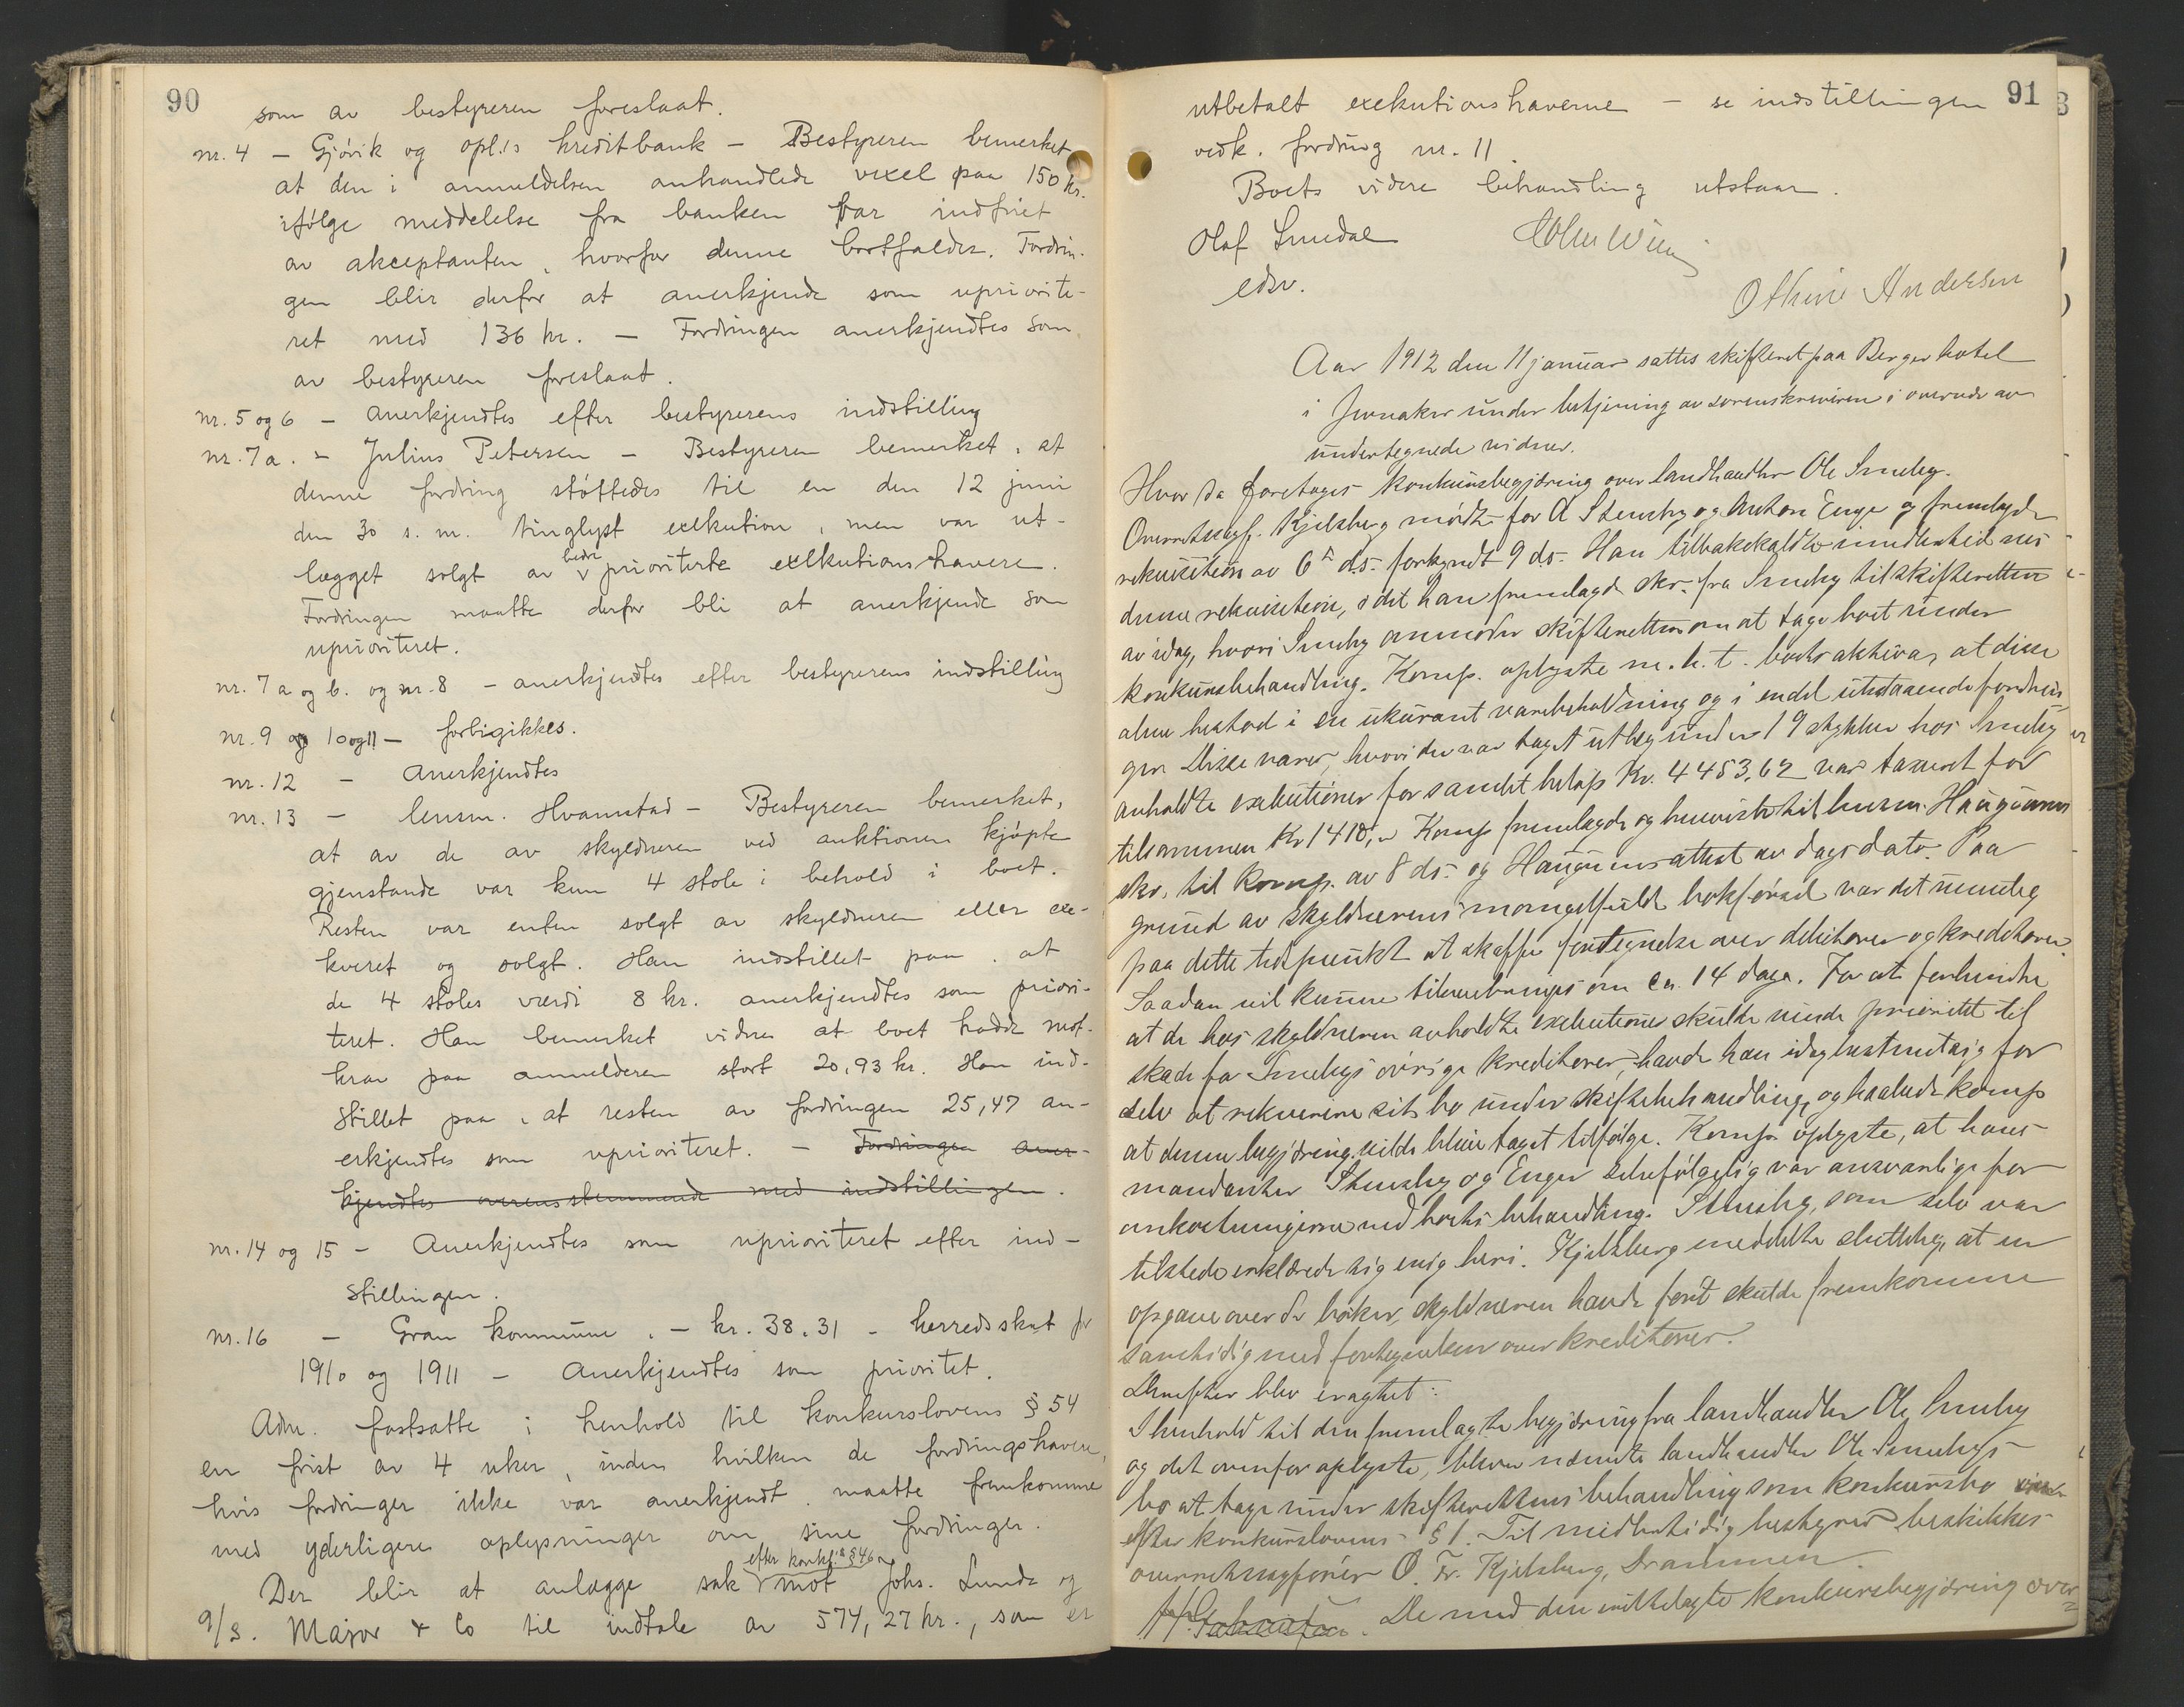 90
som av bestyreren foreslaat.
nr. 4 – Gjövik og opl.s kreditbank – Bestyreren bemerket
at den i anmeldelsen omhandlede vexel paa 150 kr.
ifölge meddelelse fra banken var indfriet
av akceptanten, hvorfor denne bortfalder. Fordrin-
gen blir derfor at anerkjende som upriorite-
ret med 136 kr. – Fordringen anerkjendtes som
av bestyreren foreslaat.
nr. 5 og 6 – anerkjendtes efter bestyrerens indstilling
nr. 7a. – Julius Petersen – Bestyreren bemerket, at
denne fordring stöttedes til en den 12 juni
den 30 s. m. tinglyst exekution, men var ut-
lægget solgt av bedre prioriterte exekutionshavere.
Fordringen maatte derfor bli at anerkjende som
uprioriteret.
nr. 7a og b. og nr. 8 – anerkjendtes efter bestyrerens indstilling
nr. 9 og 10 og 11 – forbigikkes.
nr. 12 – Anerkjendtes
nr. 13 – lensm. Hvamstad – Bestyreren bemerket,
at av de av skyldneren ved auktionen kjöpte
gjenstande var kun 4 stole i behold i boet.
Resten var enten solgt av skyldneren eller exe-
kveret og solgt. Han indstillet paa, at
de 4 stoles værdi 8 kr. anerkjendtes som priori-
teret. Han bemerket videre at boet hadde mot-
krav paa anmelderen stort 20,93 kr. Han ind-
stillet paa, at resten av fordringen 25,47 an-
erkjendtes som uprioriteret. – Fordringen aner-
kjendtes overensstemmende med indstillingen.
nr. 14 og 15 – Anerkjendtes som uprioriteret efter ind-
stillingen.
nr. 16 – Gran kommune. – kr. 38.31 – herredsskat for
1910 og 1911 – Anerkjendtes som prioritet.
Adm. fastsatte i henhold til konkurslovens § 54
en frist av 4 uker, inden hvilken de fordringshavere,
hvis fordringer ikke var anerkjendt, maatte fremkomme
med yderligere oplysninger om sine fordringer.
Der blir at anlægge sak efter konkl.s § 46 mot Johs. Lunde og
9/3. Major & Co til indtale av 574,27 kr., som er
91
utbetalt exekutionshaverne – se indstillingen
vedk. fordring nr. 11.
Boets videre behandling utstaar.
Olaf Smedal
edsv.
Othine Andersen
Aar 1912 den 11 januar sattes skifteret paa Berger hotel
i Jevnaker under betjening av sorenskriveren i overvær av
undertegnede vidner.
Hvor da foretoges konkursbegjæring over landhandler Ole Smeby.
Overretssagf. Kjelsberg mödte for A Stensby og Anton Enger og fremlagde
rekvisition av 6te ds. forkyndt 9 ds. Han tilbakekaldte imidlertid nu
denne rekvisition, idet han fremlagde skr. fra Smeby til skifteretten
av idag, hvori Smeby anmoder skifteretten om at tage boet under
konkursbehandling. Komp. oplyste m. h. t. boets aktiva, at disse
alene bestod i en ukurant varebeholdning og i endel utestaaende fordrin-
ger. Disse varer, hvori der var taget utlæg under 19 stykker hos Smeby
anholdte exekutioner for samlet belöp Kr. 4453,62 var taxeret for
tilsammen Kr 1410,- Komp fremlagde og henviste til lensm. Haugums
skr. til komp. av 8 ds. og Haugums attest av dags dato. Paa
grund av skyldnerens mangelfulde bokförsel var det umulig
paa dette tidspunkt at skaffe fortegnelse over debitorer og kreditorer.
Saadan vil kunne tilveiebringes om ca. 14 dage. For at forhindre
at de hos skyldneren anholdte exekutioner skulde vinde prioritet til
skade for Smebys övrige kreditorer, havde han idag bestemt sig for
selv at rekvirere sit bo under skiftebehandling, og paastod komp
at denne begjæring vilde blive taget tilfölge. Komp. oplyste, at hans
mandanter Stensby og Enger selvfölgelig var ansvarlige for
omkostningerne ved boets behandling. Stensby, som selv var
tilstede erklærede sig enig heri. Kjelsberg meddelte slutteleg, at en
opgave over de böker, skyldneren havde fört skulde fremkomme
samtidig med fortegnelsen over kreditorer.
Derefter blev eragtet:
I henhold til den fremlagte begjæring fra landhandler Ole Smeby
og det ovenfor oplyste, bliver nævnte landhandler Ole Smebys
bo at tage under skifterettens behandling som konkursbo
efter konkurslovens § 1. Til midlertidig bestyrer beskikkes
overretssagförer O. Fr. Kjelsberg, Drammen.
De med den indtlagte konkursbegjæring over